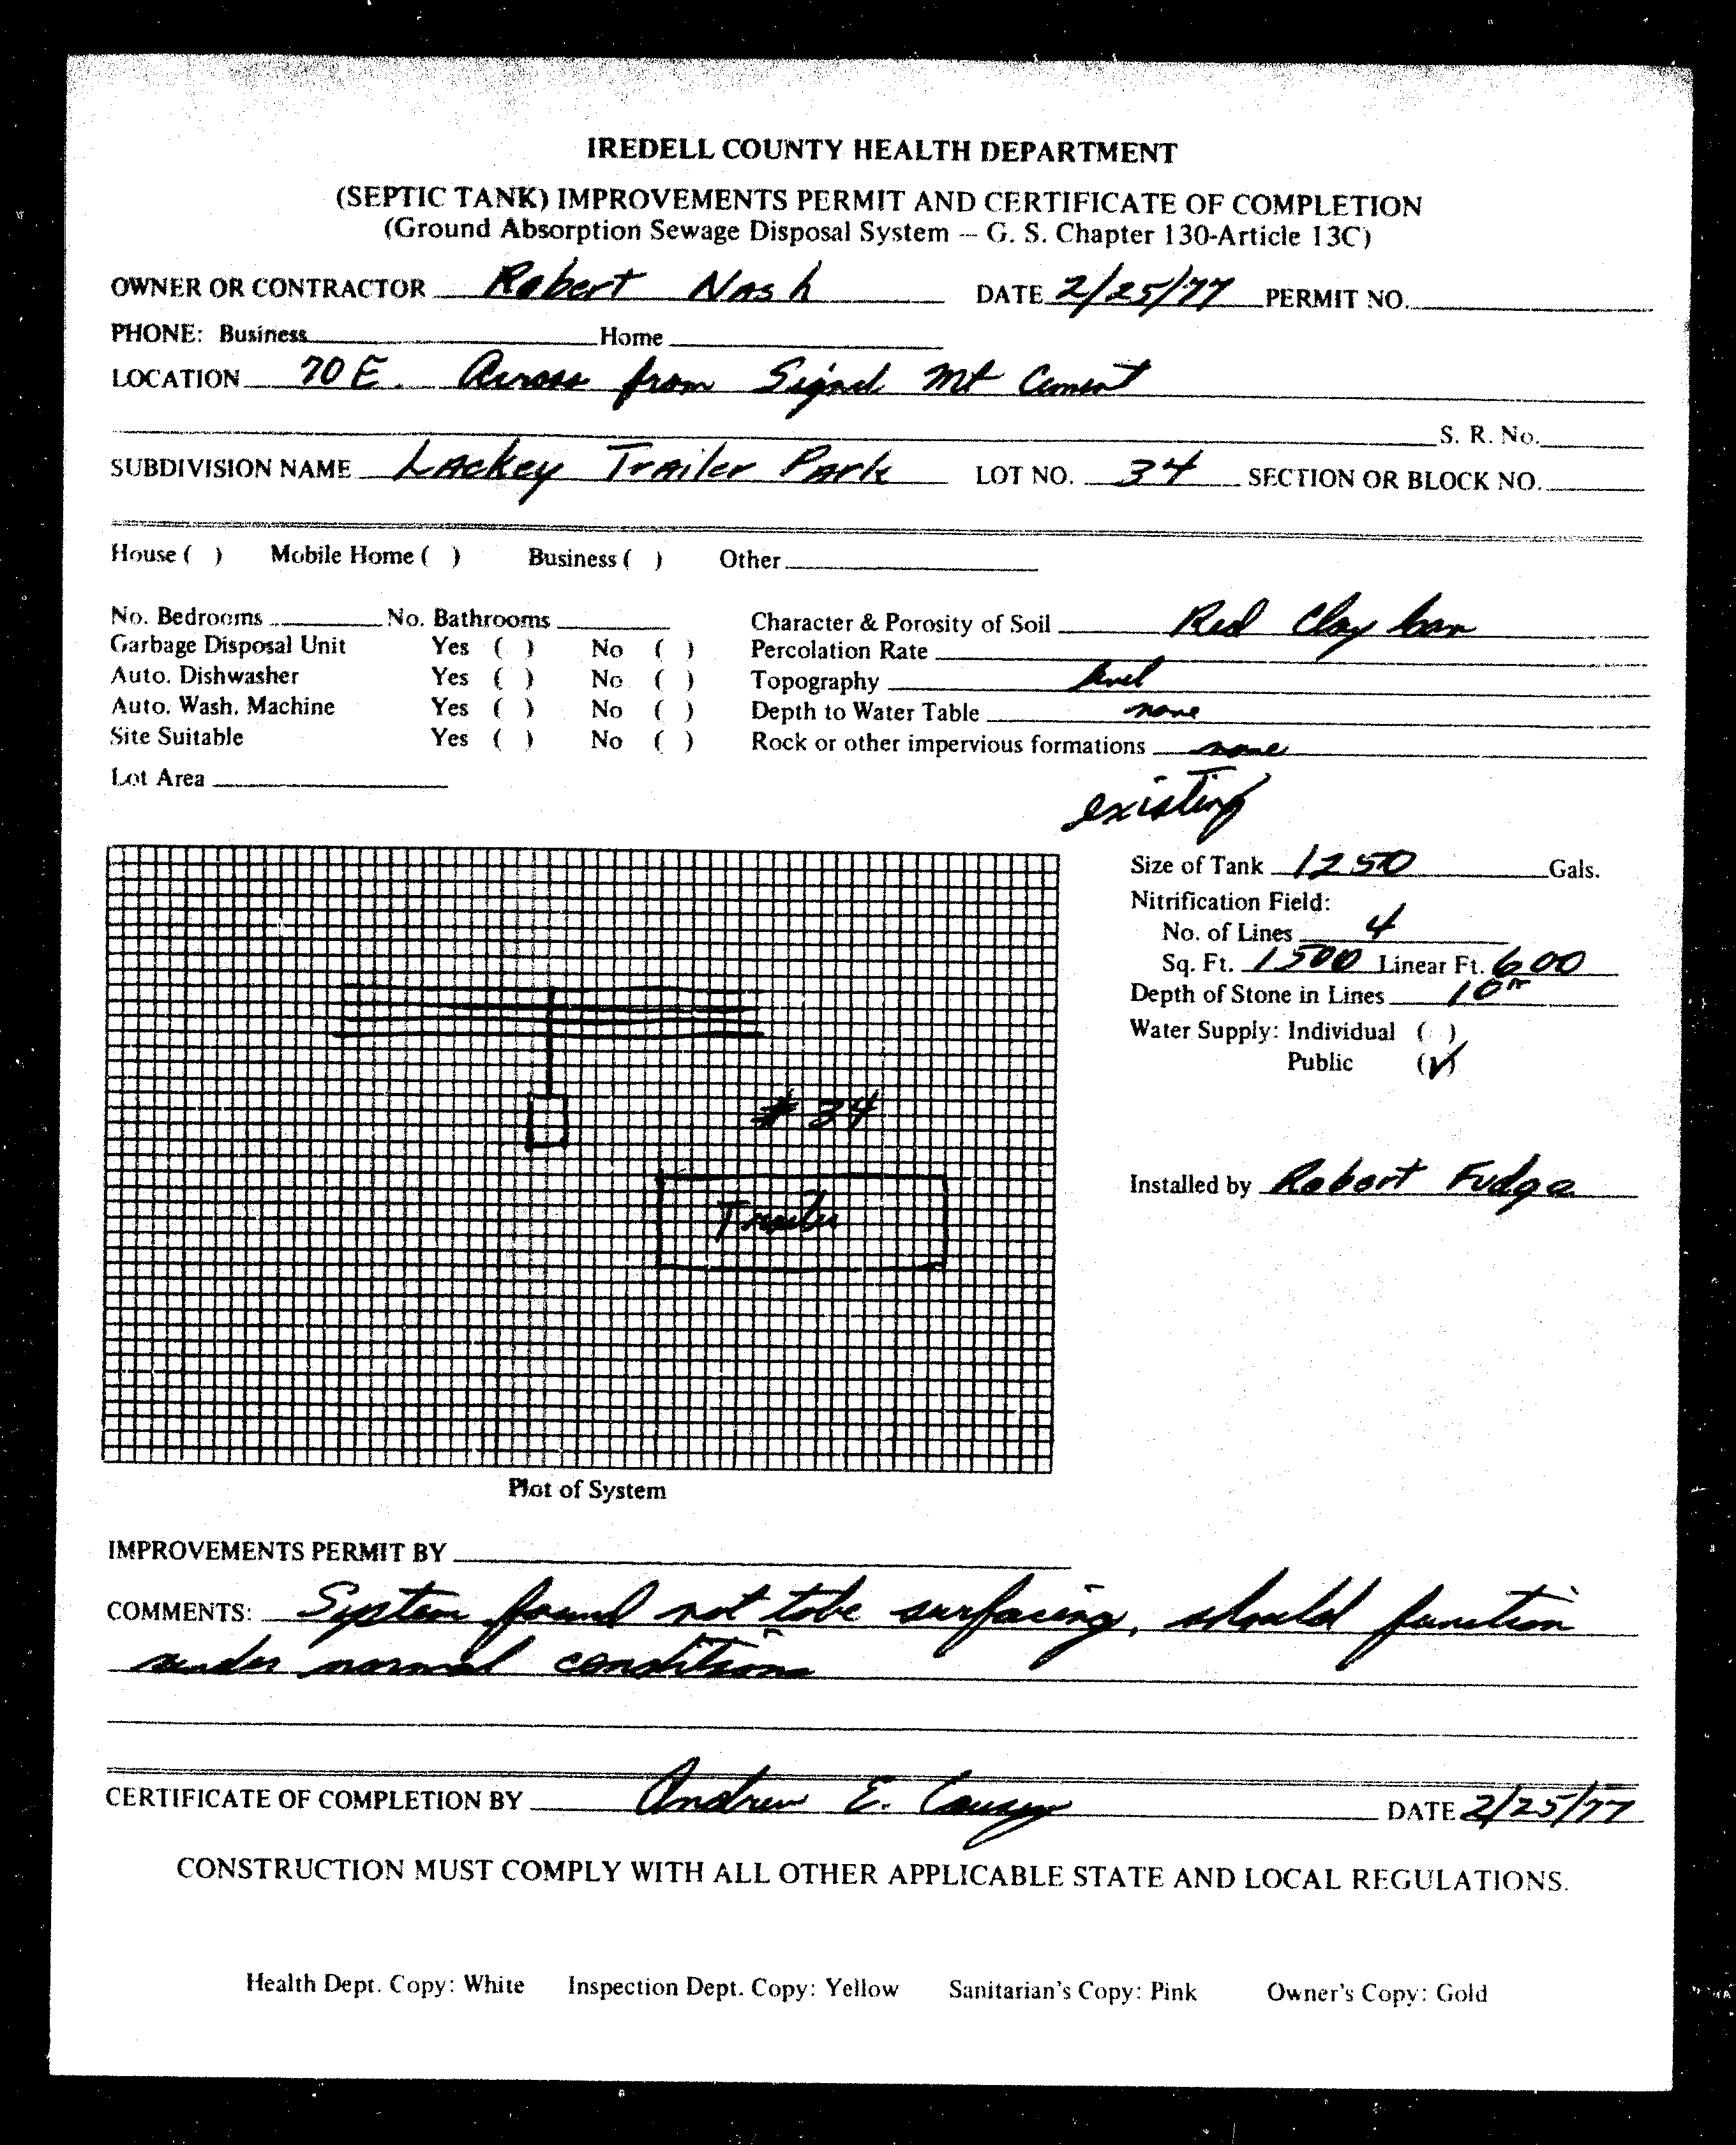 IREDELL COUNTY HEALTH DEPARTMENT
(SEPTIC TANK) IMPROVEMENTS PERMIT AND CERTIFICATE OF COMPLETION
(Ground Absorption Sewage Disposal System — G. S. Chapter 130-Article 13C)
OWNER OR CONTRACTOR Robert Nash DATE 2/25/77 PERMIT NO.
PHONE: Business Home
LOCATION 70 E. Across from Signal Mt Cement
S. R. No.
SUBDIVISION NAME Lackey Trailer Park LOT NO. 34 SECTION OR BLOCK NO.
House ( ) Mobile Home ( ) Business ( ) Other
No. Bedrooms No. Bathrooms Character & Porosity of Soil Red Clay loam
Garbage Disposal Unit Yes ( ) No ( ) Percolation Rate
Auto. Dishwasher Yes ( ) No ( ) Topography level
Auto. Wash. Machine Yes ( ) No ( ) Depth to Water Table none
Site Suitable Yes ( ) No ( ) Rock or other impervious formations none
Lot Area
existing
Size of Tank 1250 Gals.
Nitrification Field:
No. of Lines 4
Sq. Ft. 1500 Linear Ft. 600
Depth of Stone in Lines 10"
Water Supply: Individual ( )
Public (✓)
# 34
Trailer
Installed by Robert Fudge
Plot of System
IMPROVEMENTS PERMIT BY
COMMENTS: System found not to be surfacing, should function
under normal conditions
CERTIFICATE OF COMPLETION BY Andrew E. Causey DATE 2/25/77
CONSTRUCTION MUST COMPLY WITH ALL OTHER APPLICABLE STATE AND LOCAL REGULATIONS.
Health Dept. Copy: White Inspection Dept. Copy: Yellow Sanitarian's Copy: Pink Owner's Copy: Gold